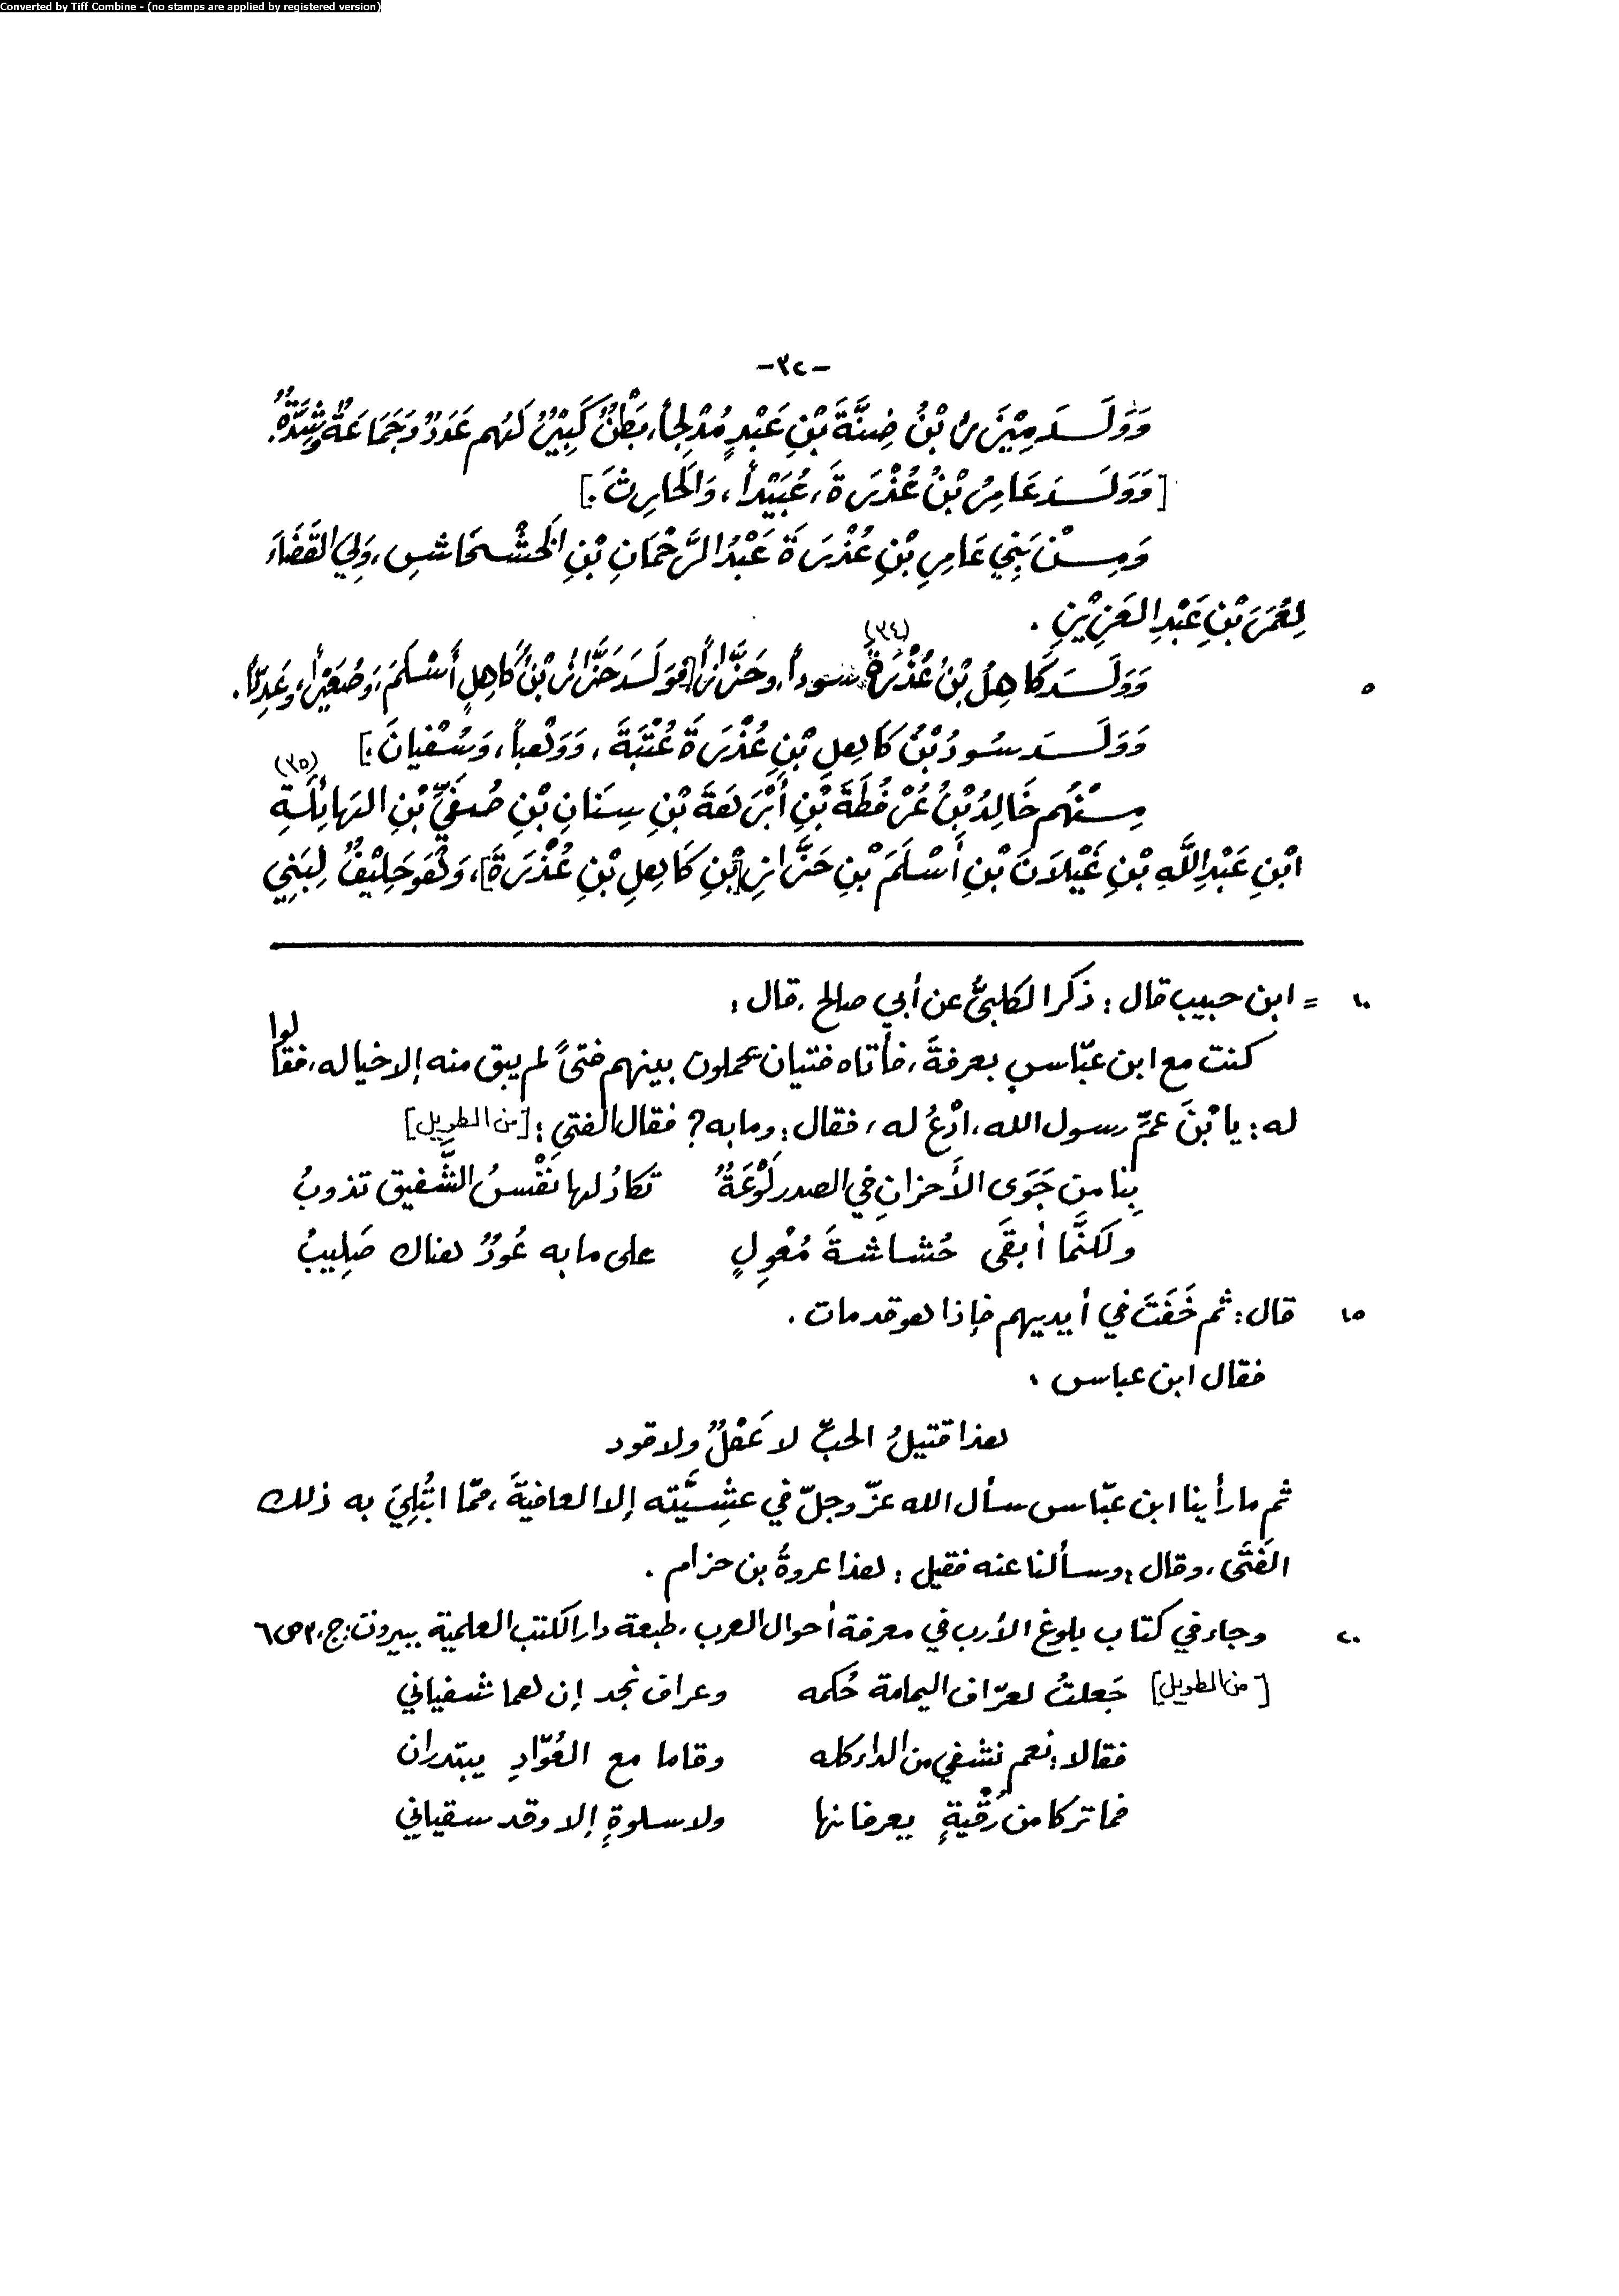 Converted by Tiff Combine - (no stamps are applied by registered version)
-٣٢-
وَوَلَـــدَ مِيْزَرُ بْنُ ضِنَّةَ بْنِ عَبْدٍ مُدْلِجاً، بَطْنٌ كَبِيْرٌ لَهُم عَدَدٌ وَجَمَاعَةٌ وَشِدَّةٌ.
[وَوَلَـــدَ عَامِرُ بْنُ عُذْرَةَ، عُبَيْداً، وَالحَارِثَ.]
وَمِـــنْ بَنِي عَامِرِ بْنِ عُذْرَةَ عَبْدُ الرَّحْمَانِ بْنِ الخَشْخَاشِ، وَلِيَ القَضَاءَ
لِعُمَرَ بْنِ عَبْدِ العَزِيْزِ .
٥ وَوَلَـــدَ كَاهِلُ بْنُ عُذْرَةَ (٣٤) سوداً، وحَزَّازاً [فوَلَدَ حَزَّازُ بْنُ كَاهِلٍ أَسْلَمَ، وَصُعَيْراً، وعَدِيّاً.
وَوَلَـــدَ سُودُ بْنُ كَاهِلِ بْنِ عُذْرَةَ عُتْبَةَ، وَوَهْباً، وَسُفْيانَ.]
مِـــنْهُم خَالِدُ بْنُ عُرْفُطَةَ بْنِ أَبْرَهَةَ بْنِ سِنَانِ بْنِ صُيفَيِّ بْنِ الهَائِلَةِ (٣٥)
ابْنِ عَبْدِ اللَّهِ بْنِ غَيْلَانَ بْنِ أَسْلَمَ بْنِ حَزَّازِ [بْنِ كَاهِلِ بْنِ عُذْرَةَ]، وَهُوَ حَلِيْفٌ لِبَنِي
١٠ = ابن حبيب قال : ذكر الكلبيُّ عن أبي صالح . قال :
كنت مع ابن عبّاس بعرفةَ، فأتاه فتيان يحملون بينهم فتىً لم يبق منه إلا خياله، فقالوا
له : يا بْنَ عمّ رسول الله، ادْعُ له، فقال : وما به ؟ فقال الفتى : [من الطويل]
بِنا من جَوَى الأَحزانِ في الصدر لَوْعَةٌ    تكادُ لها نفْسُ الشَّفيق تذوبُ
ولكنَّما أبقَى حُشاشةَ مُعْولٍ    على ما به عُودٌ هناك صَلِيبُ
١٥ قال : ثم خَفَتَ في أيديهم فإذا هو قد مات .
فقال ابن عباس :
هذا قتيلُ الحبِّ لا عَقْلٌ ولا قود
ثم ما رأينا ابن عبّاس سأل الله عزّ وجلّ في عشِيَّته إلا العافيةَ، ممّا ابتُلِيَ به ذلك
الفَتَى، وقال : وسألنا عنه فقيل : هذا عروةُ بن حزام .
٢٠ وجاء في كتاب بلوغ الأرب في معرفة أحوال العرب، طبعة دار الكتب العلمية ببيروت : ج، ٣ ص٦
[من الطويل] جَعلتُ لعرّاف اليمامة حُكمه    وعراف نجد إن هما شفياني
فقالا : نعم نشفي من الداء كله    وقاما مع العُوّادِ يبتدران
فما تركا من رُقْيةٍ يعرفانها    ولا سلوةٍ إلا وقد سقياني